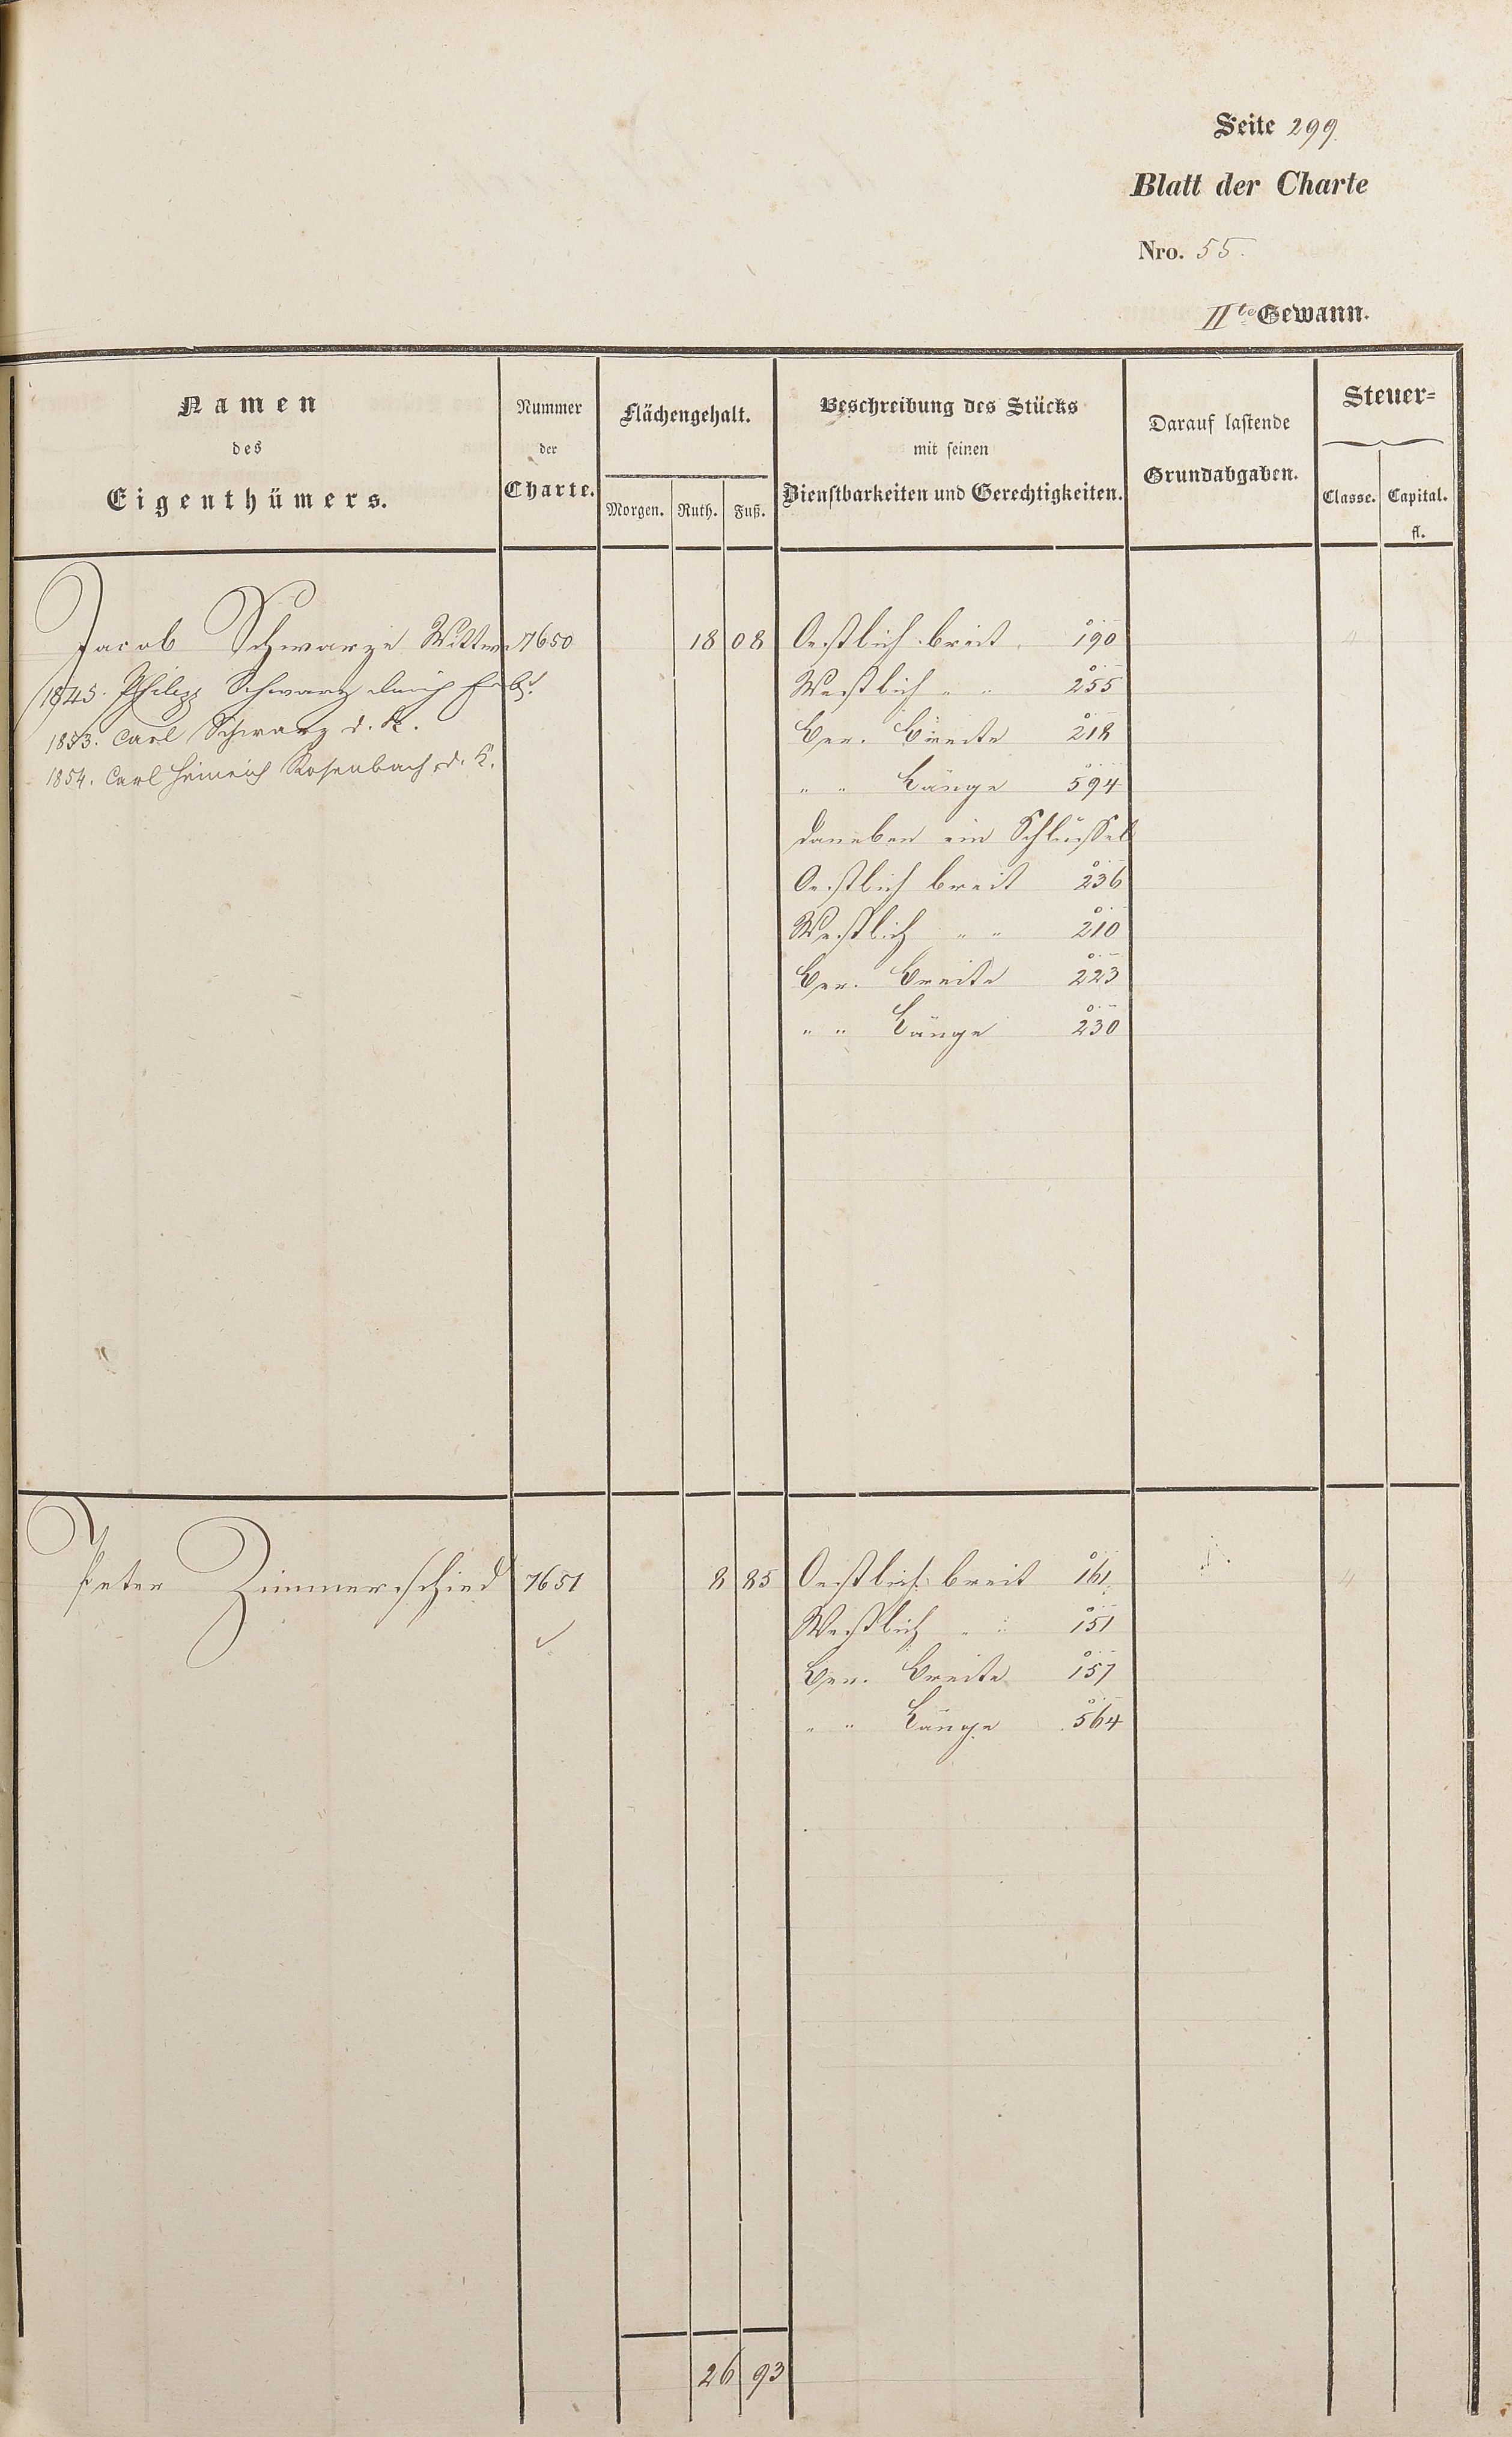 Seite 299.
Blatt der Charte
Nro. 55.
IIte Gewann.
Namen
des
Eigenthümers.
Nummer
der
Charte.
Flächengehalt.
Morgen. Ruth. Fuß.
Beschreibung des Stücks
mit seinen
Dienstbarkeiten und Gerechtigkeiten.
Darauf lastende
Grundabgaben.
Steuer-
Classe. Capital.
fl.
Jacob Schwarze Wittwe 7650 18 08 Oestlich breit 190 4
1845. Philipp Schwarz durch Westlich " " 255
1853. Carl Schwarz d. K. Ger. Breite 218
1854. Carl Heinrich Rosenbach d. K. " " Länge 594
daneben ein Schlüssel
Oestlich breit 236
Westlich " " 210
Ger. Breite 223
" " Länge 230
Peter Zimmerschied 7651 8 85 Oestlich breit 161 4
Westlich " " 151
Ger. Breite 157
" " Länge 564
26 93